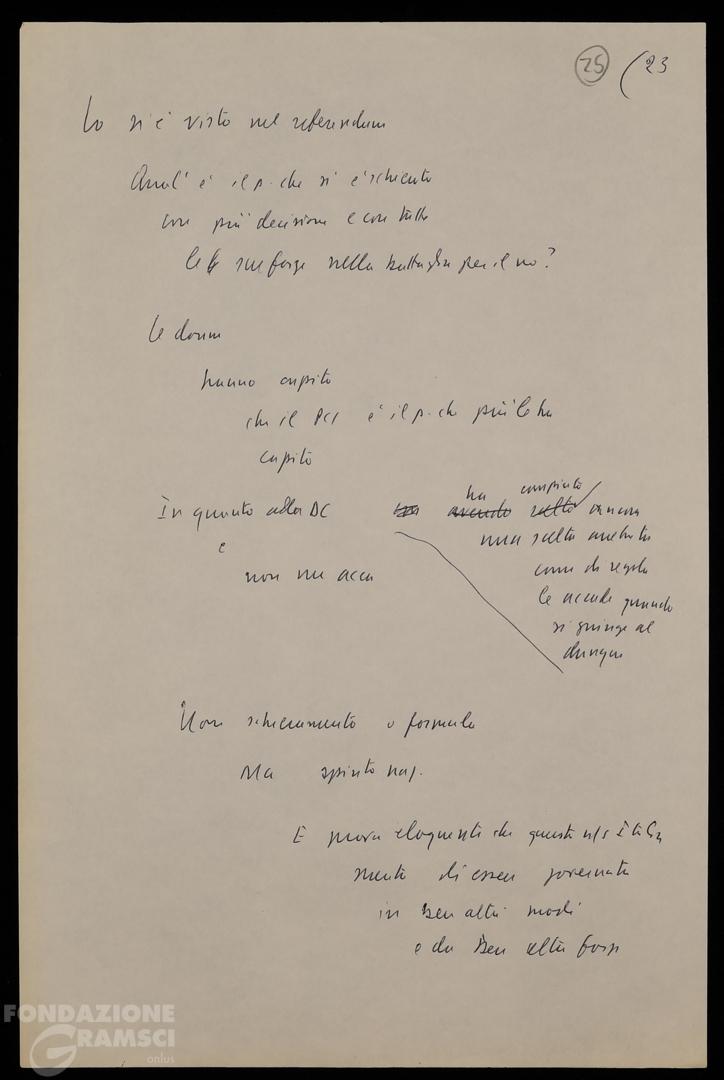 25 (23
Lo si è visto nel referendum
Qual' è il p. che si è schierato
con più decisione e con tutte
le sue forze nella battaglia per il no?
Le donne
hanno capito
che il PCI è il p. che più le ha
capito
In quanto alla DC ha compiuto ancora
e una scelta
non ne acca
come di regola
le accade quando
si giunge al
dunque
Non schieramento o formula
Ma spirito naz.
E prova eloquente che questa n/s Italia
merita di essere governata
in ben altri modi
e da ben altre forze
FONDAZIONE
GRAMSCI
onlus